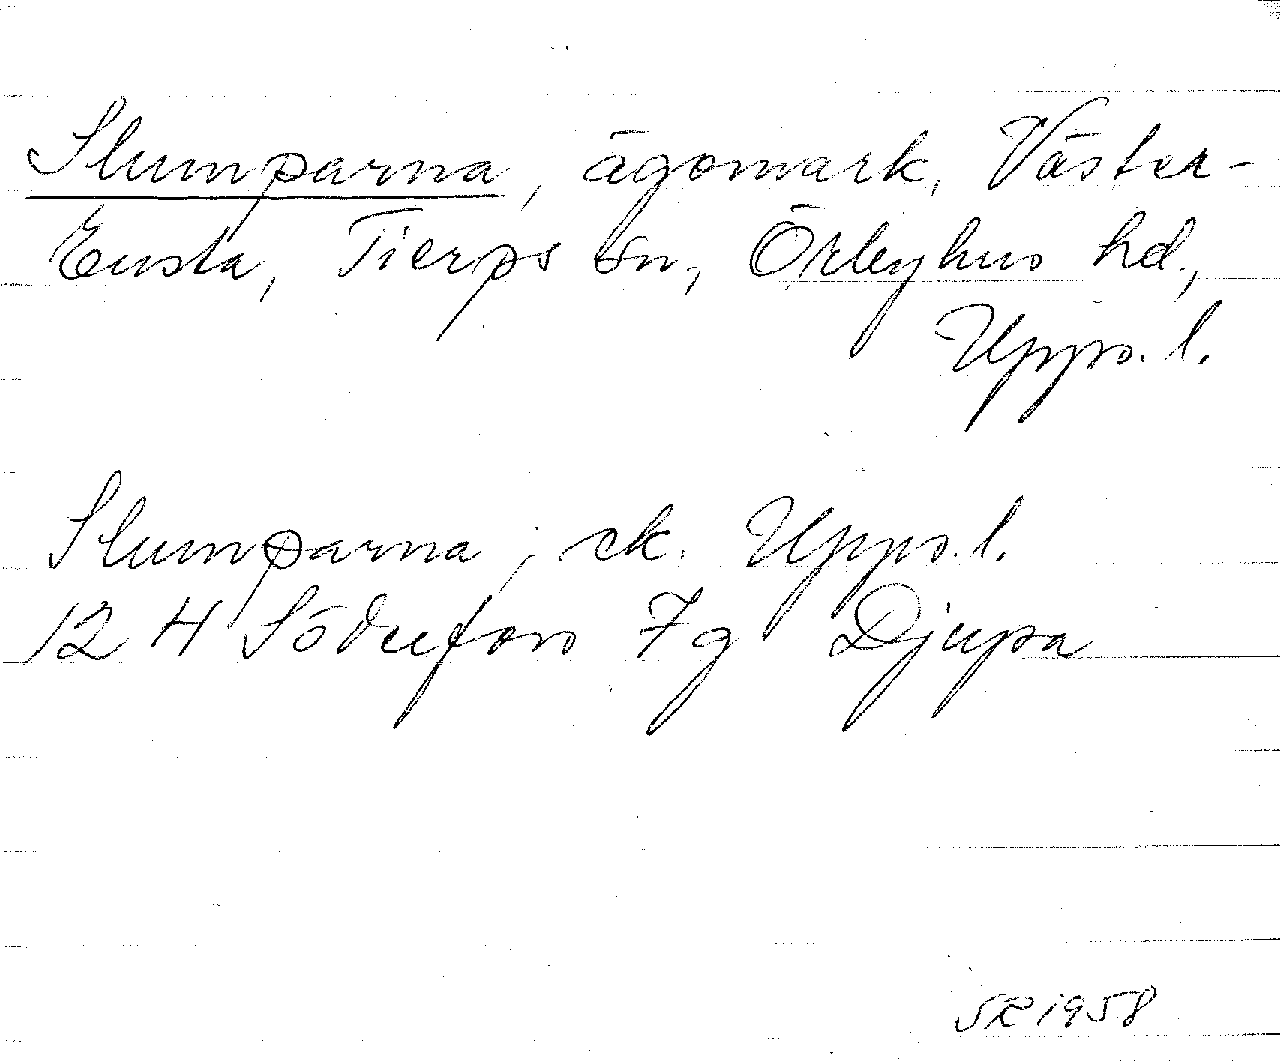 Slumparna, ägomark, Väster-
Ensta, Tierps sn, Örbyhus hd,
Upps. l.
Slumparna, ek. Upps. l.
12 H Söderfors 7 g Djupa
SR 1958